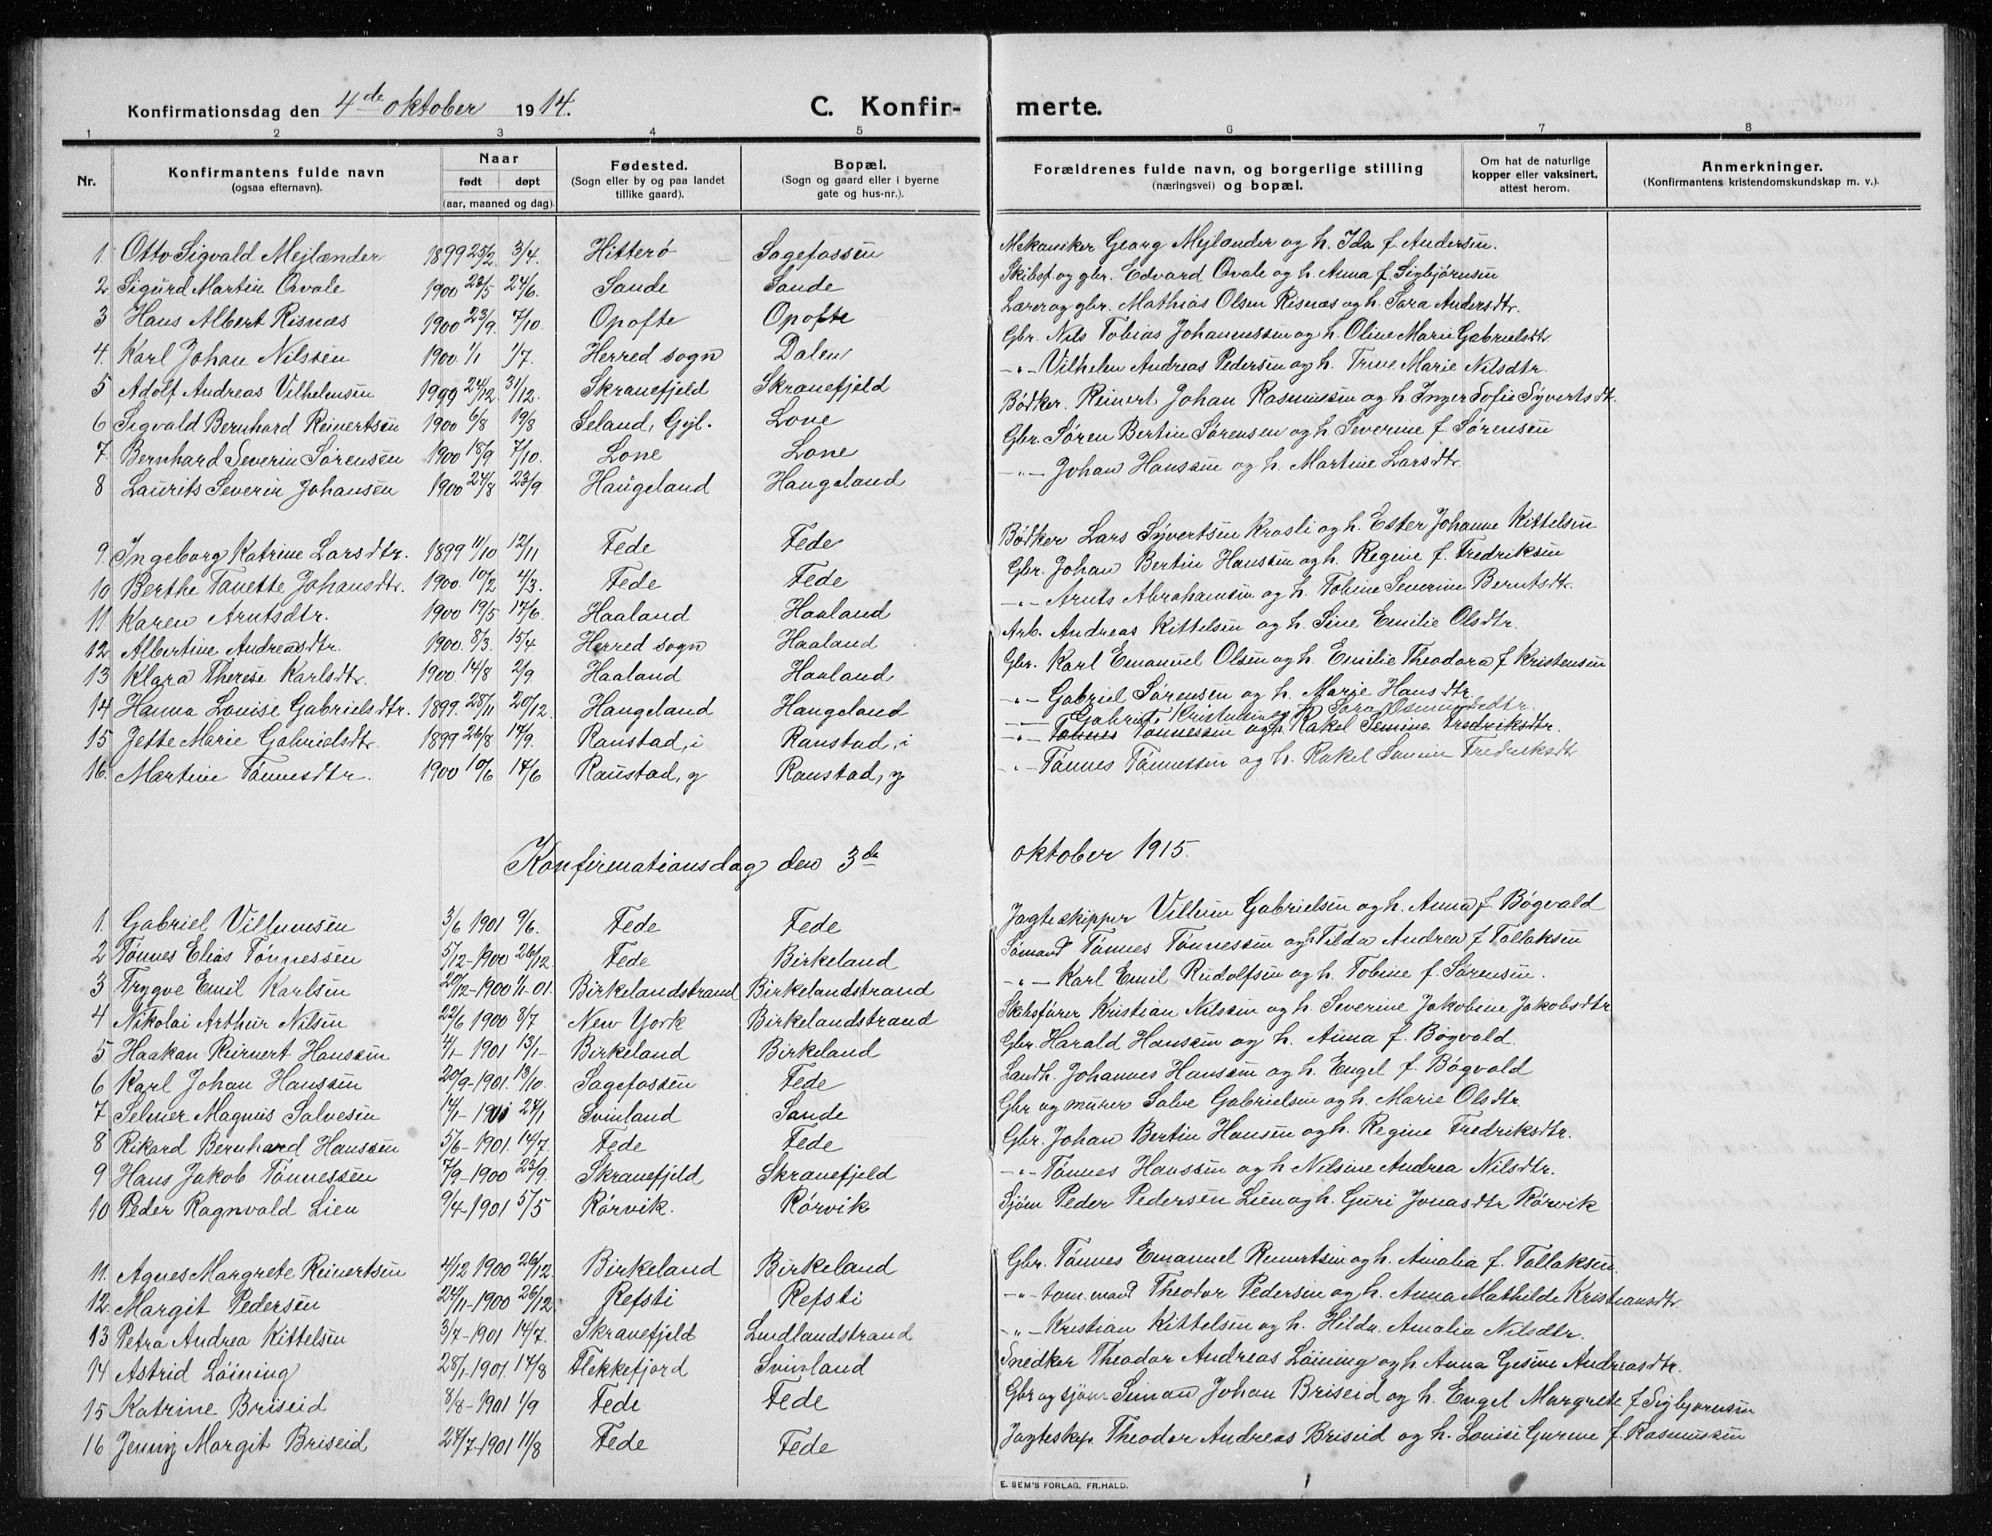 Konfirmationsdag den 4de oktober 1914. C. Konfirmerte.
1 2 3 4 5 6 7 8
Nr. Konfirmantens fulde navn (ogsaa efternavn). Naar født døpt (aar, maaned og dag). Fødested. (Sogn eller by og paa landet tillike gaard). Bopæl. (Sogn og gaard eller i byerne gate og hus-nr.). Forældrenes fulde navn, og borgerlige stilling (næringsvei) og bopæl. Om hat de naturlige kopper eller vaksinert, attest herom. Anmerkninger. (Konfirmantens kristendomskundskap m. v.).
1. Otto Sigvald Mejlænder 1899 25/2. 3/4. Hitterø Sagefossen Mekaniker Georg Mejlænder og h. Ida f. Andersen.
2 Sigurd Martin Qvale 1900 23/5 24/6. Sande Sande Skibsf. og gbr. Edvard Qvale og h. Anna f. Sigbjørnsen
3 Hans Albert Risnæs 1900 23/9. 7/10. Opofte Opofte Lærer og gbr. Mathias Olsen Risnæs og h. Sara Andersdtr.
4. Karl Johan Nilssen 1900. 1/1 1/7. Herred sogn Dalen Gbr. Nils Tobias Johannessen og h. Oline Marie Gabrielsdtr
5 Adolf Andreas Vilhelmsen 1999 24/12. 31/12. Skranefjeld Skranefjeld -"- Vilhelm Andreas Pedersen og h. Trine Marie Nilsdtr.
6 Sigvald Bernhard Reinertsen 1900 6/8 19/8 Seland, Gyl. Lone Bødker. Reinert Johan Rasmussen og h Inger Sofie Syvertsdt.
7 Bernhard Severin Sørensen 1900 18/9 7/10. Lone Lone Gbr. Søren Bertin Sørensen og h Severine f. Sørensen
8 Laurits Severin Johansen 1900 24/8 23/9 Haugeland Haugeland -"- Johan Hanssen og h. Martine Larsdtr
9. Ingeborg Katrine Larsdtr. 1899 11/10 12/11 Fede Fede Bødker Lars Syvertsen Krosli og h. Ester Johanne Kittelsen
10 Berthe Tanette Johansdtr. 1900. 10/2 4/3. Fede Fede Gbr. Johan Bertin Hanssen og h. Regine f. Fredriksen
11. Karen Arntsdtr. 1900 19/5 17/6 Haaland Haaland -"- Arnts Abrahamsen og h. Tobine Severine Berntsdtr.
12 Albertine Andreasdtr. 1900. 8/3. 15/4 Herred sogn Haaland Arb. Andreas Kittelsen og h. Sine Emilie Olsdtr.
13 Klara Therese Karlsdtr. 1900 14/8 2/9 Haaland Haaland Gbr. Karl Emanuel Olsen og h. Emilie Theodora f Kristensen
14 Hanna Louise Gabrielsdtr. 1899. 28/11 20/12. Haugeland Haugeland -"- Gabriel Sørensen og h. Marie Hansdtr.
15 Jette Marie Gabrielsdtr. 1899 26/8 17/9. Raustad, i Raustad, i -"- Gabriel Kristensen og h Sara Osmundsdtr.
-"- Tønnes Tønnessen og h. Rakel Semine Fredriksdtr.
16. Martine Tønnesdtr. 1900 10/6 17/6 Raustad, y Raustad, y -"- Tønnes Tønnessen og h. Rakel Semine Fredriksdt
Konfirmationsdag den 3de oktober 1915.
1. Gabriel Villumsen 3/6 1901 9/6. Fede Fede Jagteskipper Villum Gabrielsen og h. Anna f. Bøgvald
2 Tønnes Elias Tønnessen 5/12-1900 26/12. Fede Birkeland Sømand Tønnes Tønnessen og h Tilda Andrea f Tollaksen
3 Trygve Emil Karlsen 20/12-1900 1/1-01. Birkelandstrand Birkelandstrand -"- Karl Emil Rudolfsen og h. Tobine f. Sørensen.
4 Nikolai Arthur Nilsen 22/6 1900 8/7 New York Birkelandstrand Skibsfører Kristian Nilssen og h. Severine Jakobine Jakobsdtr
5 Haakan Reinert Hanssen 4/1-1901 13/1- Birkeland Birkeland Gbr. Harald Hanssen og h. Anna f. Bøgvald.
6 Karl Johan Hanssen 20/9-1901. 13/10. Sagefossen Fede Landh. Johannes Hanssen og h. Engel f. Bøgvald
7 Selmer Magnus Salvesen 14/1-1901 24/1 Svinland Sande Gbr og murer Salve Gabrielsen og h. Marie Olsdtr.
8 Rikard Bernhard Hanssen 5/6-1901. 14/7. Fede Fede Gbr. Johan Bertin Hansen og h. Regine Fredriksdtr.
9 Hans Jakob Tønnessen 7/9-1900 23/9. Skranefjeld Skranefjeld -"- Tønnes Hanssen og h Nilsine Andrea Nilsdtr.
10 Peder Ragnvald Lien 9/4-1901 5/5 Rørvik. Rørvik Sjøm Peder Pedersen Lien og h. Guri Jonasdtr Rørvik
11. Agnes Margrete Reinertsen 4/12 1900 26/12. Birkeland Birkeland Gbr. Tønnes Emanuel Reinertsen og h. Amalia f. Tollaksen.
12. Margit Pedersen 24/11-1900 26/12. Refsti Refsti -"- tøm.mand Theodor Pedersen og h. Anna Mathilde Kristiansdtr.
13 Petra Andrea Kittelsen 3/7-1901 14/7. Skranefjeld Lindlandstrand -"- Kristian Kittelsen og h. Hilda. Amalia Nilsdtr.
14 Astrid Løining 28/1-1901. 14/8 Flekkefjord Svinland Snedker Theodor Andreas Løining og h Anna Gesine Andreasdtr.
15 Katrine Briseid 8/8-1901 1/9 Fede Fede Gbr og sjøm Simon Johan Briseid og h. Engel Margrete f Sigbjørnsen
16 Jenny Margit Briseid 24/7-1901 11/8 Fede Fede Jagteskp. Theodor Andreas Briseid og h. Louise Gurine f. Rasmussen
E. SEM'S FORLAG. FR.HALD.